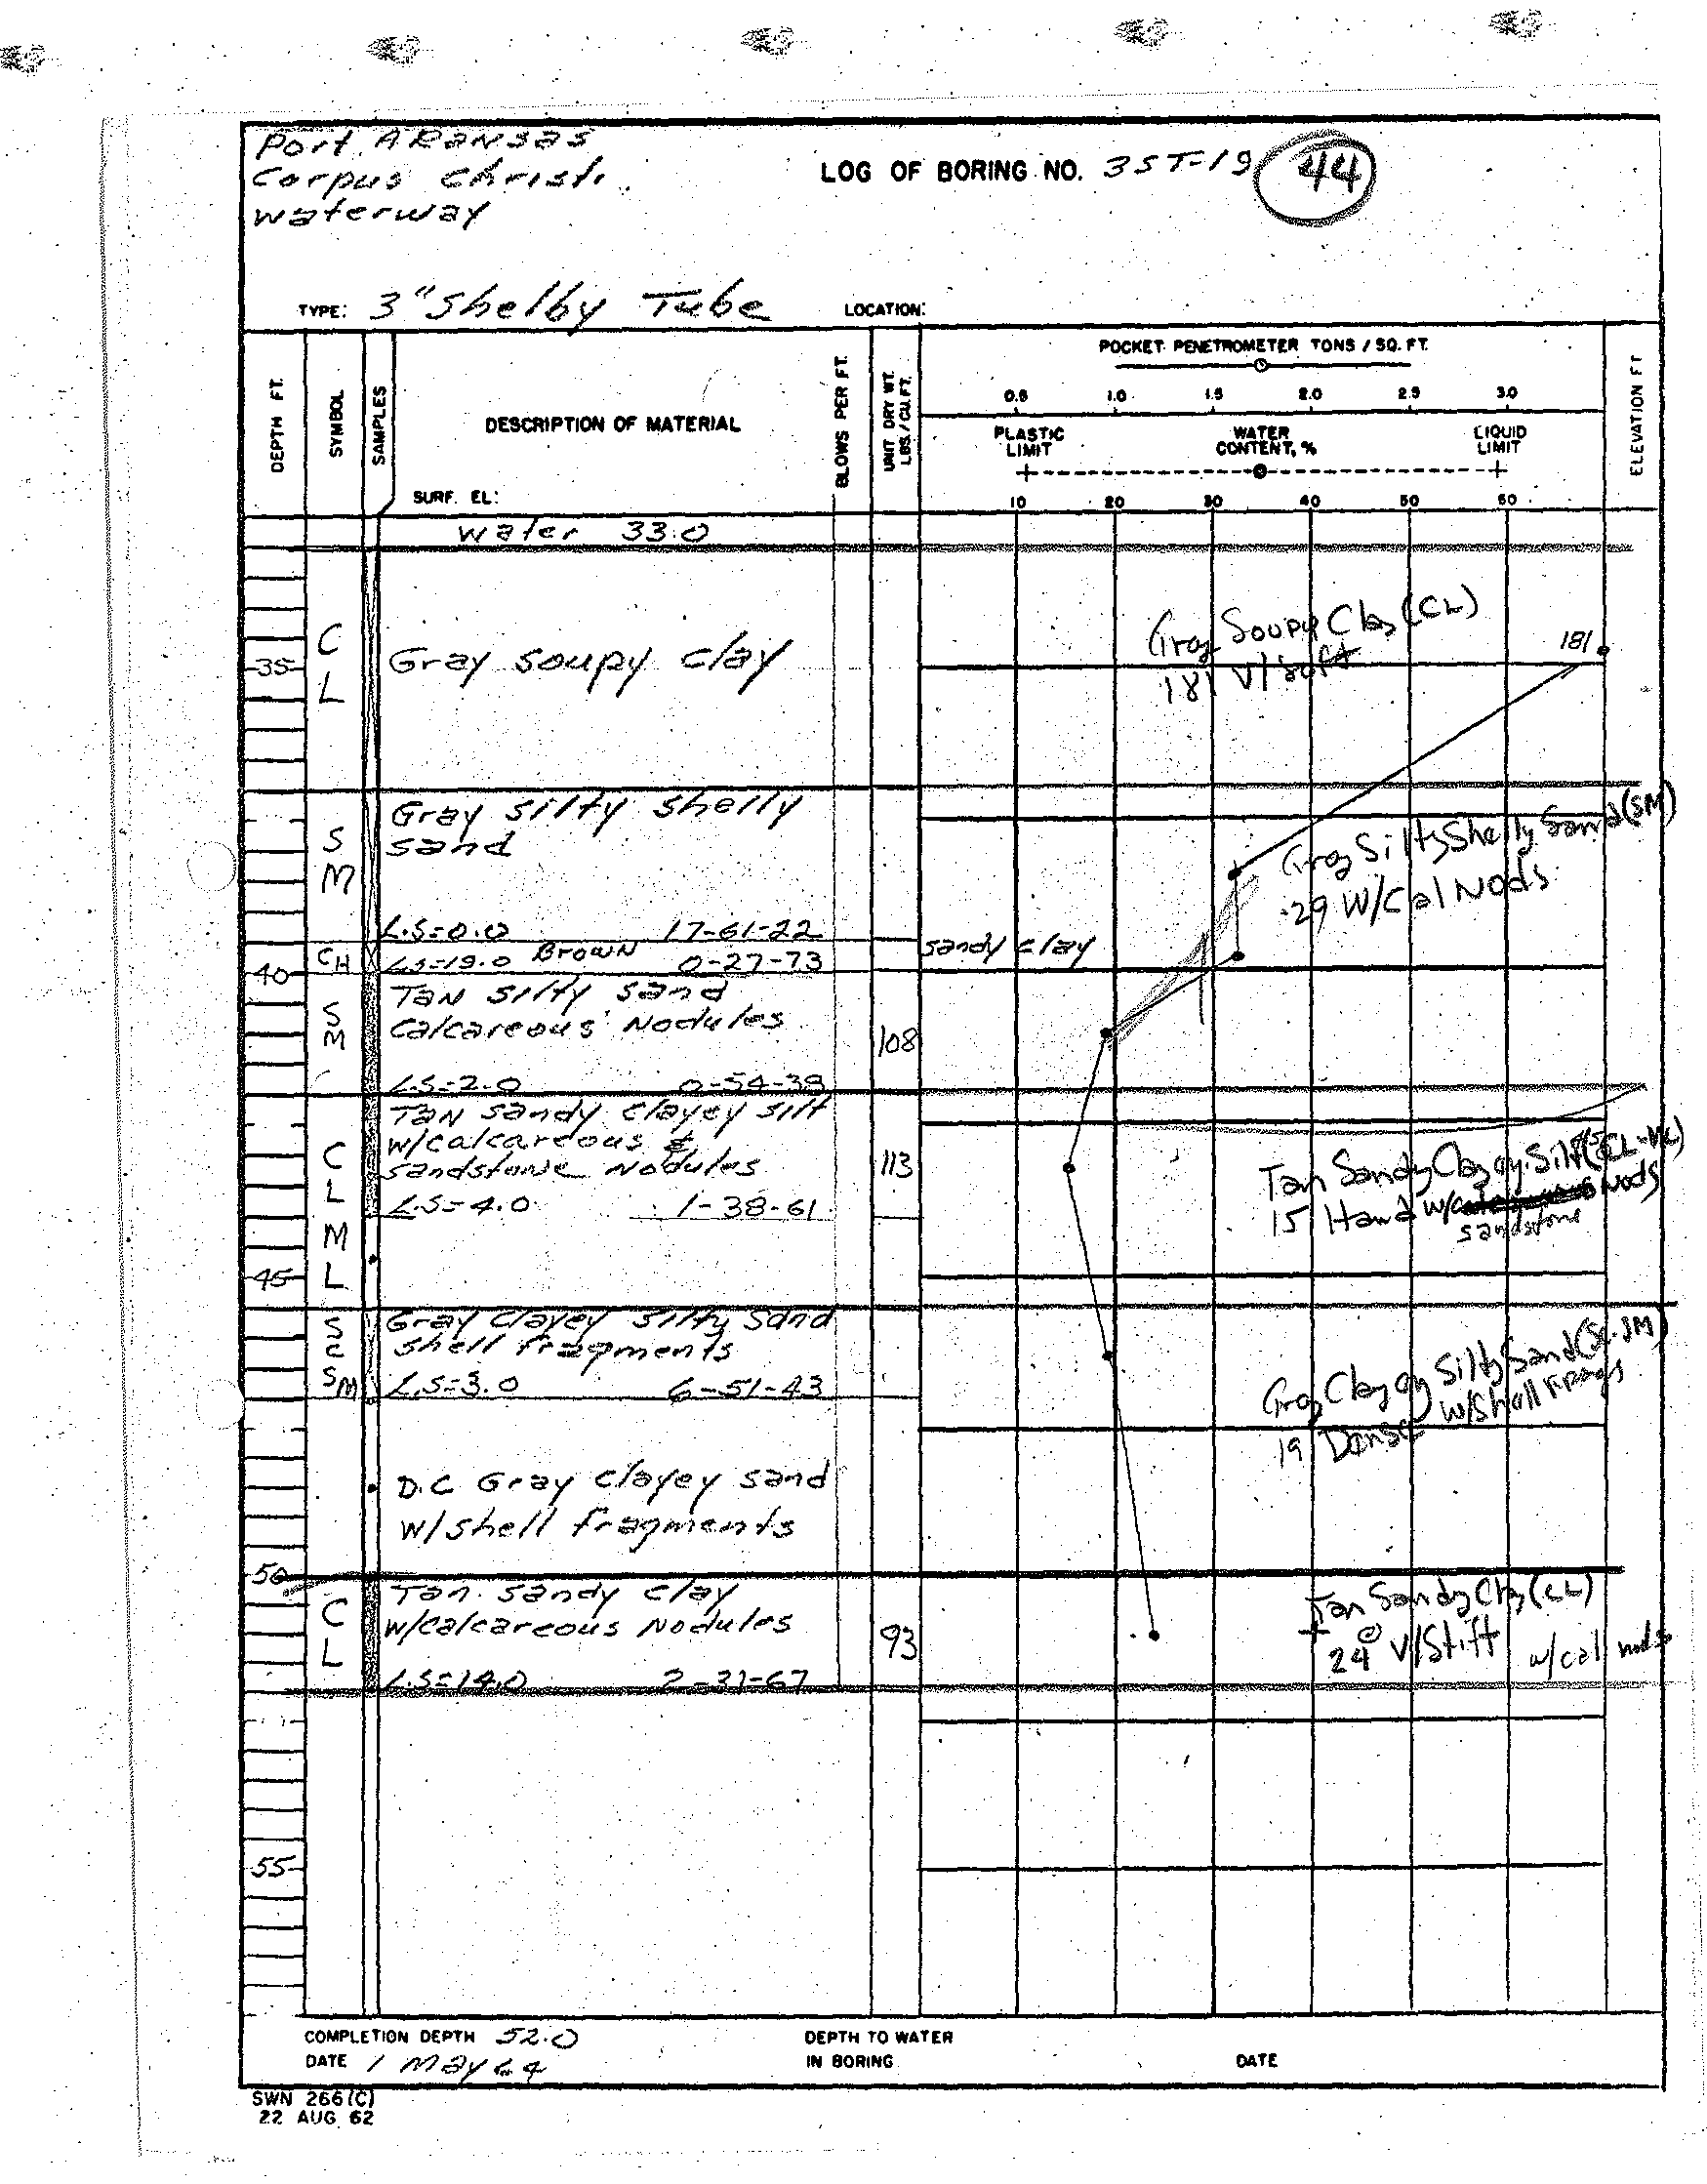 Port ARansas
Corpus Christi
waterway
LOG OF BORING NO. 3ST-19 44
TYPE: 3" Shelby Tube LOCATION:
DEPTH FT.
SYMBOL
SAMPLES
DESCRIPTION OF MATERIAL
SURF. EL:
BLOWS PER FT.
UNIT DRY WT.
LBS./CU.FT.
POCKET PENETROMETER TONS / SQ. FT.
0.5 1.0 1.5 2.0 2.5 3.0
PLASTIC LIMIT WATER CONTENT, % LIQUID LIMIT
10 20 30 40 50 60
ELEVATION FT
water 33.0
CL
35
Gray soupy clay
Gray Soupy Clay (CL)
181 V/Soft
181
SM
Gray silty shelly
sand
L.S=0.0 17-61-22
Gray Silty Shelly Sand (SM)
29 W/Cal Nods
CH
LS=19.0 Brown 0-27-73 sandy clay
40
SM
Tan silty sand
calcareous Nodules
108
L.S=2.0 0-54-39
CL ML
TAN sandy clayey silt
w/calcareous &
sandstone Nodules
113
L.S=4.0 1-38-61
Tan Sandy Clayey Silt
15 Hard w/ Nods
sandstone
45
SC SM
Gray Clayey silty sand
shell fragments
L.S=3.0 6-51-43
Gray Clayey Silty Sand (SC-SM)
w/Shell Frags
19 Dense
D.C Gray clayey sand
w/shell fragments
50
CL
Tan sandy clay
w/calcareous Nodules
93
L.S=14.0 2-31-67
Tan Sandy Clay (CL)
24 V/Stiff w/cal nods
55
COMPLETION DEPTH 52.0 DEPTH TO WATER
DATE 1 May 64 IN BORING DATE
SWN 266(C)
22 AUG. 62